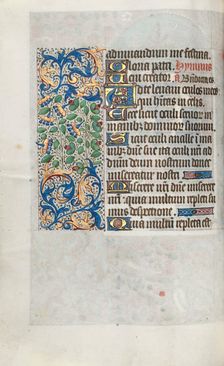 adiuuandum me festina
Gloria patri. Hymnus
ueni creator. a
Ad te leuaui oculos meos
qui habitas in celis.
Ecce sicut oculi seruorum in
manibus dominorum suorum.
Sicut oculi ancille in
nibus domine sue ita oculi nri ad
dnm deum nostrum donec
misereatur nostri
Miserere nri dne miserere
nri: quia multum repleti su
mus despectione.
Quia multum repleta